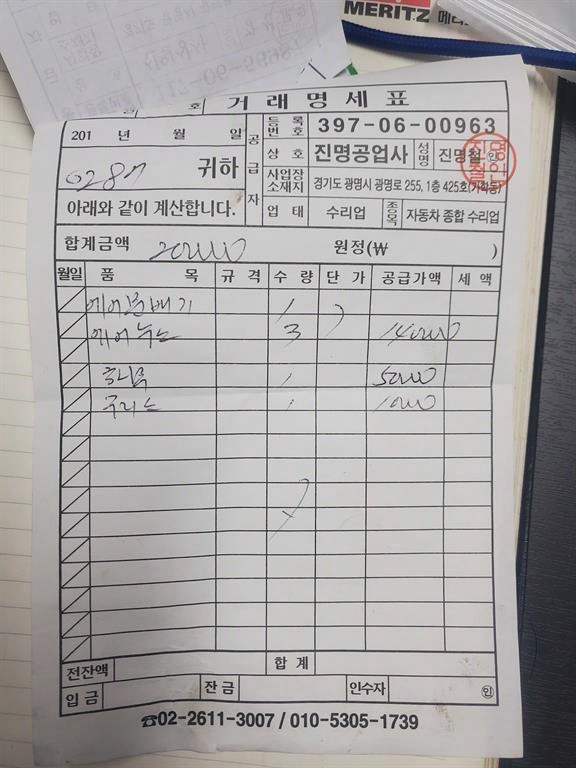 MERITZ 메리
거 래 명 세 표
201 년 월 일
0287 귀하
아래와 같이 계산합니다.
공급자
등록번호 397-06-00963
상호 진명공업사 성명 진명철 ㊞
사업장소재지 경기도 광명시 광명로 255, 1층 425호(가학동)
업태 수리업 종목 자동차 종합 수리업
합계금액 200000 원정(₩ )
월일 품 목 규 격 수 량 단 가 공급가액 세 액
에어분배기 1
에어누스 3 140000
1 50000
구리스 1 10000
전잔액 합 계
입 금 잔 금 인수자 ㊞
☎02-2611-3007 / 010-5305-1739